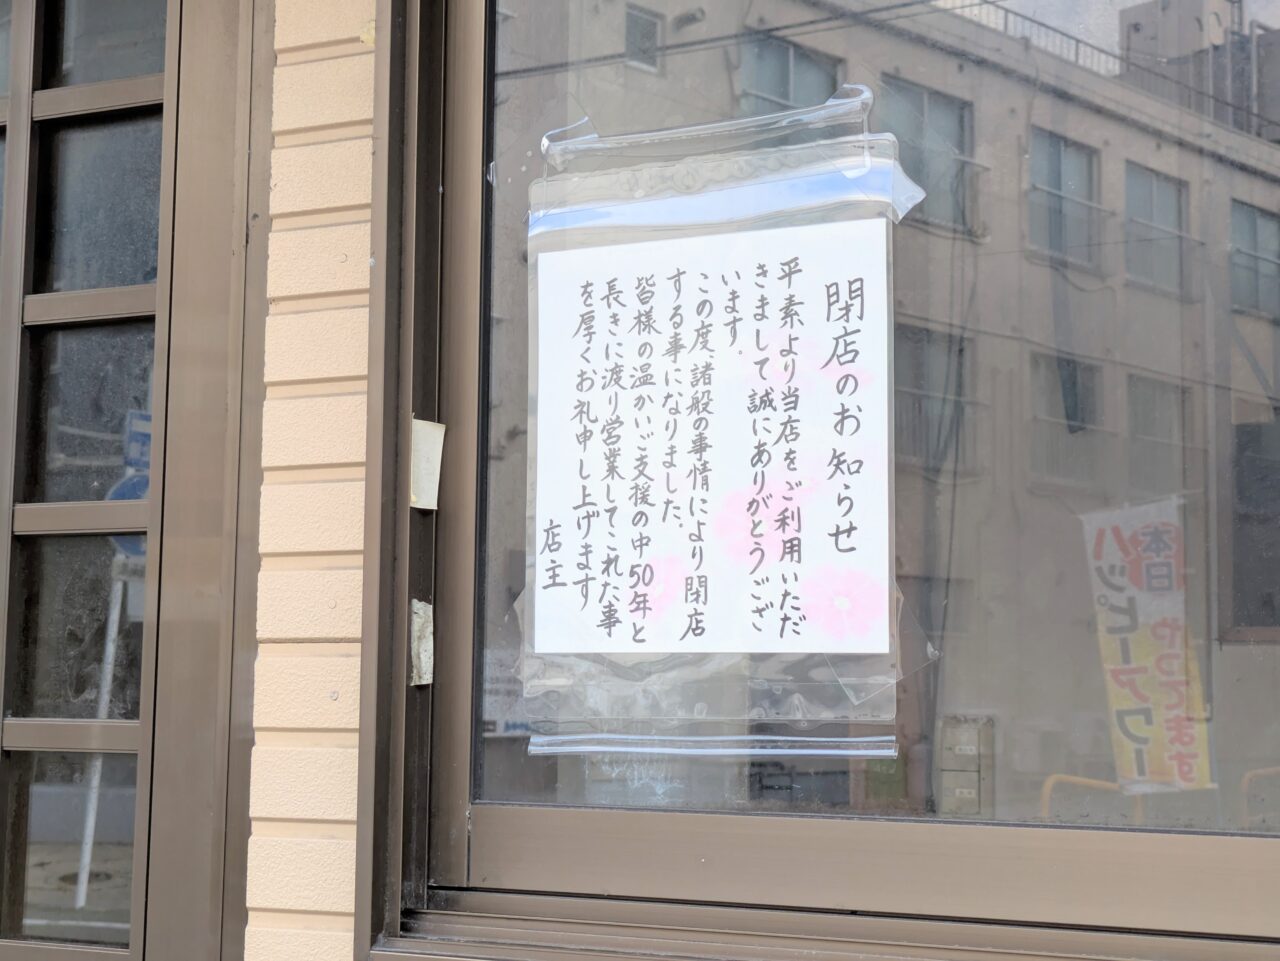 閉店のお知らせ
平素より当店をご利用いただ
きまして誠にありがとうござ
います。
この度、諸般の事情により閉店
する事になりました。
皆様の温かいご支援の中50年と
長きに渡り営業してこれた事
を厚くお礼申し上げます
店主
本日
ハッピーアワー
やってます